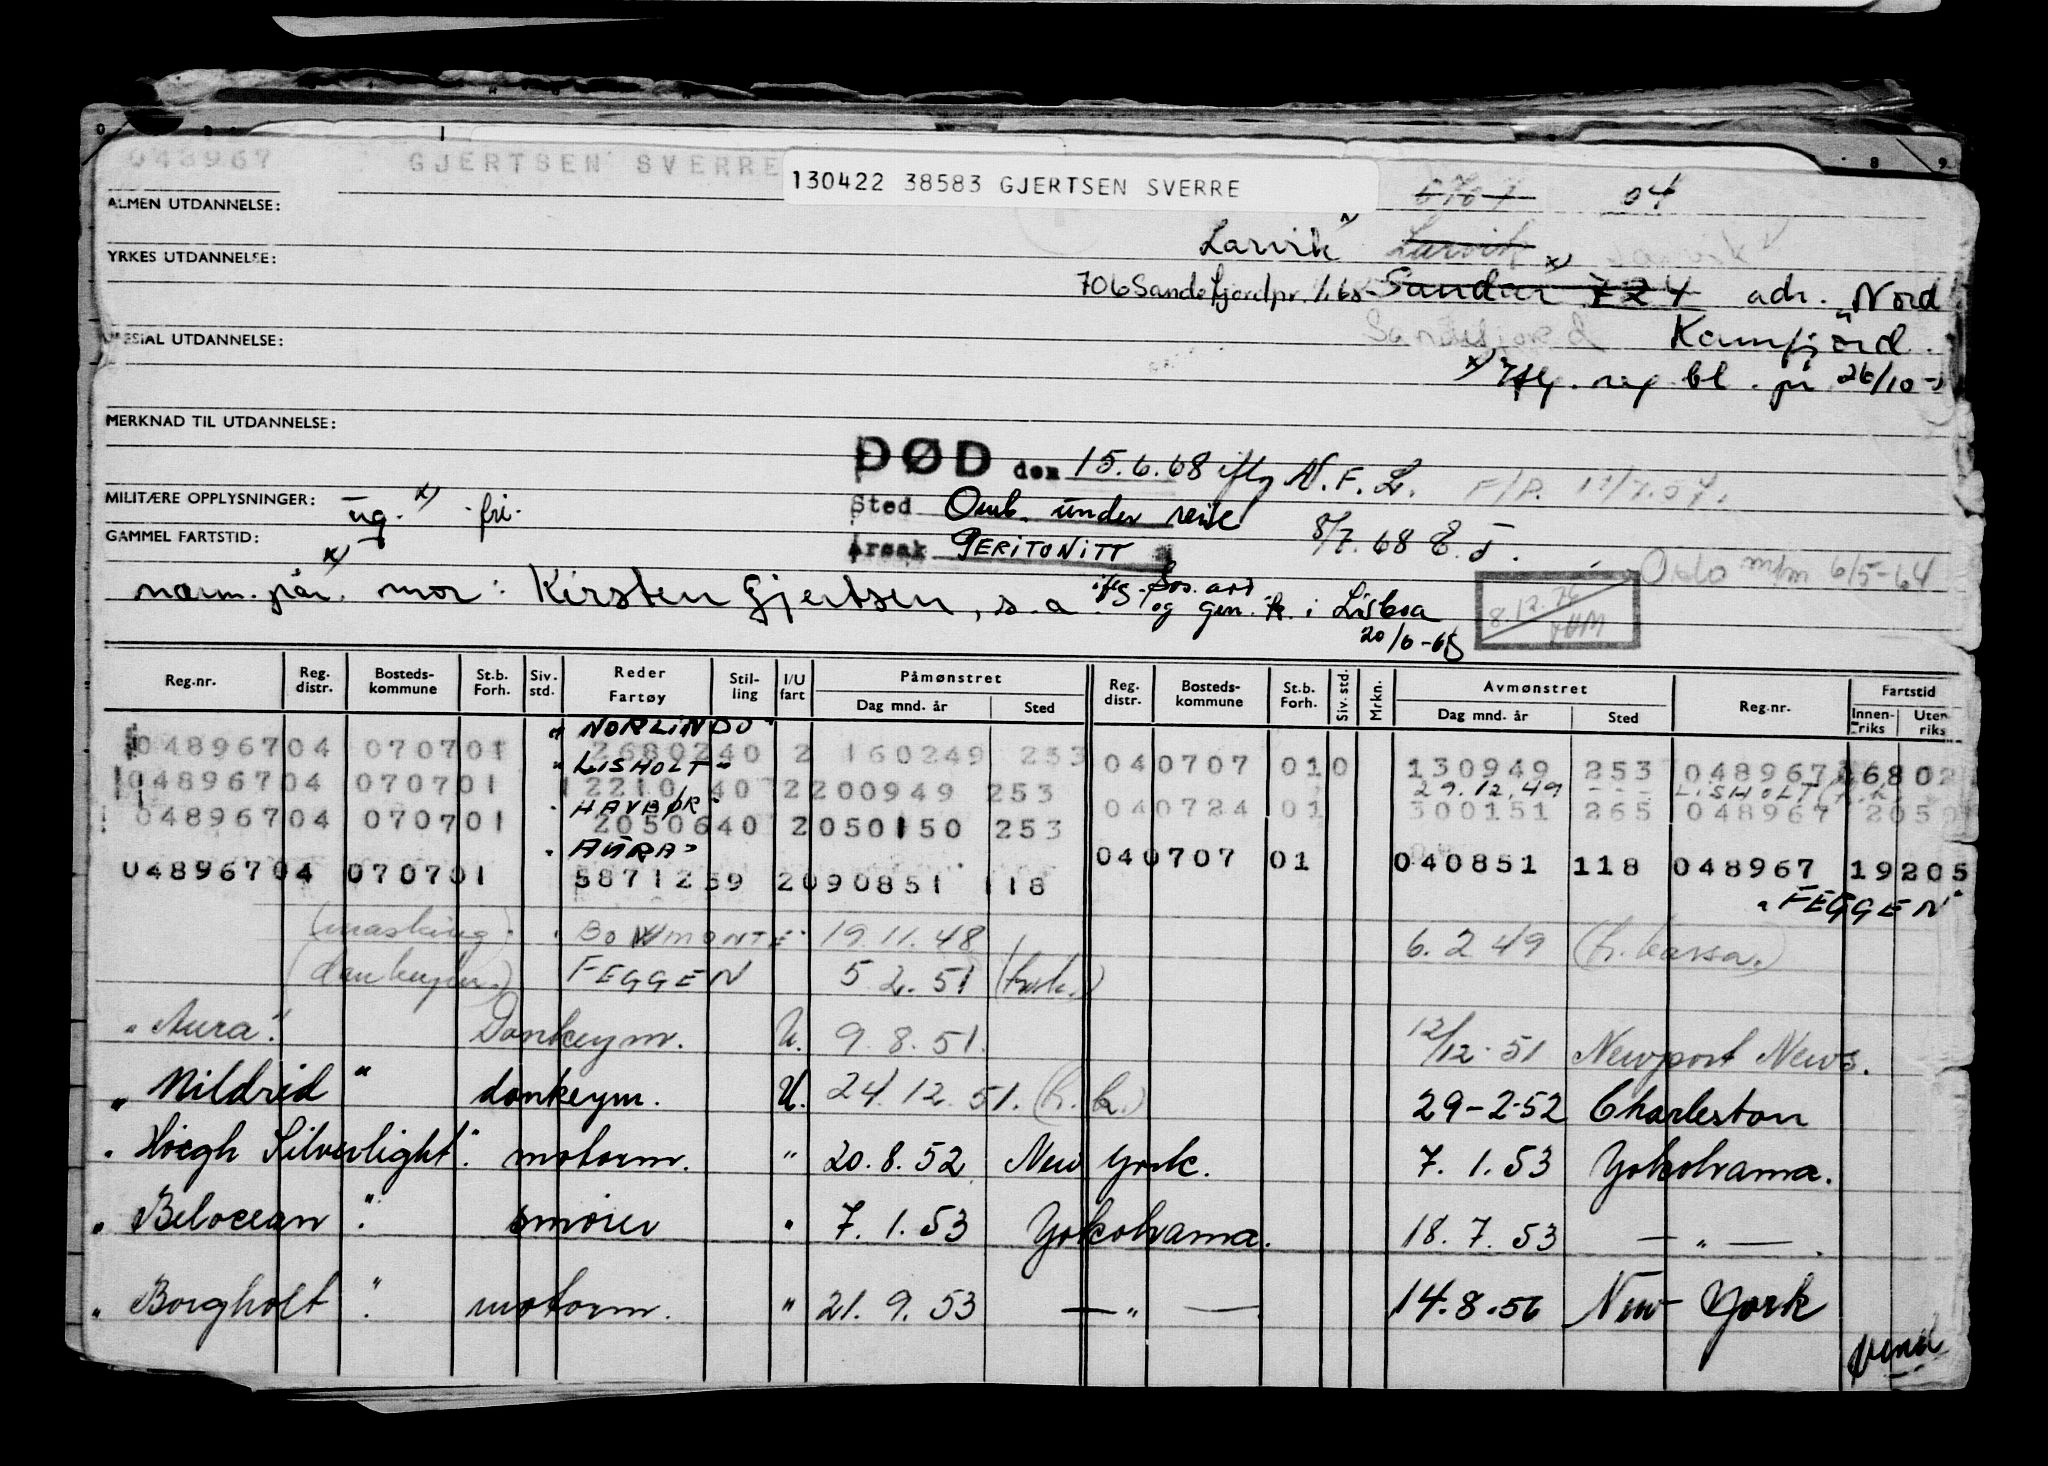 048967 GJERTSEN SVERRE
130422 38583 GJERTSEN SVERRE
0707 04
ALMEN UTDANNELSE:
Larvik Larvik
YRKES UTDANNELSE:
706 Sandefjord pr. 1/1.68 Sandar 724 adr. Nord
Sandefjord Kamfjord.
SPESIAL UTDANNELSE:
x) Iflg. reg bl. pr 26/10-
MERKNAD TIL UTDANNELSE:
DØD den 15.6.68 iflg N.F.L.
MILITÆRE OPPLYSNINGER: ug. x) fri.
Sted Omb. under reise 8/7.68 E.J.
GAMMEL FARTSTID:
Årsak PERITONITT
Oslo 6/5-64
nærm. pår. x) mor: Kirsten Gjertsen, s.a. iflg. pos. att og gen. k. i Lisboa
20/6-68
8.12.76
Reg.nr. Reg. distr. Bosteds-kommune St.b. Forh. Siv. std. Reder Fartøy Stil-ling I/U fart Påmønstret Dag mnd. år Sted Reg. distr. Bosteds-kommune St.b. Forh. Siv. std. Mrkn. Avmønstret Dag mnd. år Sted Reg.nr. Fartstid Innen-riks Uten-riks
"NORLINDO"
048967 04 0707 01 2680240 2 160249 253 04 0707 01 0 130949 253 048967 6802
"LISHOLT"
048967 04 0707 01 12210 40 2 200949 253 29.12.49 --- LISHOLT
"HAVBØR"
048967 04 0707 01 2050640 2 050150 253 04 0724 01 300151 265 048967 205
"AURA"
048967 04 0707 01 5871259 2 090851 118 04 0707 01 040851 118 048967 19205
"FEGGEN"
19.11.48 6.2.49
FEGGEN 5.2.51
"Aura" Donkeym. U. 9.8.51. 12/12.51 Newport News.
"Mildrid" donkeym. U. 24.12.51. 29-2-52 Charleston
"Höegh Silverlight" motorm. " 20.8.52 New York. 7.1.53 Yokohama.
"Belocean" smører " 7.1.53 Yokohama. 18.7.53 — " —
"Borgholt" motorm. " 21.9.53 — " — 14.8.56 New York
vend